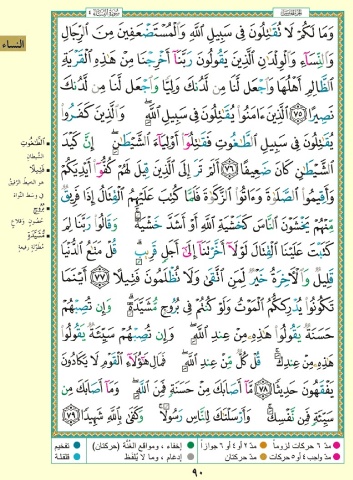 الجزء الخامس
سورة النساء ٤
النساء
وَمَا لَكُمْ لَا تُقَٰتِلُونَ فِي سَبِيلِ ٱللَّهِ وَٱلْمُسْتَضْعَفِينَ مِنَ ٱلرِّجَالِ
وَٱلنِّسَآءِ وَٱلْوِلْدَٰنِ ٱلَّذِينَ يَقُولُونَ رَبَّنَآ أَخْرِجْنَا مِنْ هَٰذِهِ ٱلْقَرْيَةِ
ٱلظَّالِمِ أَهْلُهَا وَٱجْعَل لَّنَا مِن لَّدُنكَ وَلِيًّا وَٱجْعَل لَّنَا مِن لَّدُنكَ
نَصِيرًا ٧٥ ٱلَّذِينَ ءَامَنُوا۟ يُقَٰتِلُونَ فِي سَبِيلِ ٱللَّهِ ۖ وَٱلَّذِينَ كَفَرُوا۟
يُقَٰتِلُونَ فِي سَبِيلِ ٱلطَّٰغُوتِ فَقَٰتِلُوٓا۟ أَوْلِيَآءَ ٱلشَّيْطَٰنِ ۖ إِنَّ كَيْدَ
ٱلشَّيْطَٰنِ كَانَ ضَعِيفًا ٧٦ أَلَمْ تَرَ إِلَى ٱلَّذِينَ قِيلَ لَهُمْ كُفُّوٓا۟ أَيْدِيَكُمْ
وَأَقِيمُوا۟ ٱلصَّلَوٰةَ وَءَاتُوا۟ ٱلزَّكَوٰةَ فَلَمَّا كُتِبَ عَلَيْهِمُ ٱلْقِتَالُ إِذَا فَرِيقٌ
مِّنْهُمْ يَخْشَوْنَ ٱلنَّاسَ كَخَشْيَةِ ٱللَّهِ أَوْ أَشَدَّ خَشْيَةً ۚ وَقَالُوا۟ رَبَّنَا لِمَ
كَتَبْتَ عَلَيْنَا ٱلْقِتَالَ لَوْلَآ أَخَّرْتَنَآ إِلَىٰٓ أَجَلٍ قَرِيبٍ ۗ قُلْ مَتَٰعُ ٱلدُّنْيَا
قَلِيلٌ وَٱلْءَاخِرَةُ خَيْرٌ لِّمَنِ ٱتَّقَىٰ وَلَا تُظْلَمُونَ فَتِيلًا ٧٧ أَيْنَمَا
تَكُونُوا۟ يُدْرِككُّمُ ٱلْمَوْتُ وَلَوْ كُنتُمْ فِي بُرُوجٍ مُّشَيَّدَةٍ ۗ وَإِن تُصِبْهُمْ
حَسَنَةٌ يَقُولُوا۟ هَٰذِهِ مِنْ عِندِ ٱللَّهِ ۖ وَإِن تُصِبْهُمْ سَيِّئَةٌ يَقُولُوا۟
هَٰذِهِ مِنْ عِندِكَ ۚ قُلْ كُلٌّ مِّنْ عِندِ ٱللَّهِ ۖ فَمَالِ هَٰٓؤُلَآءِ ٱلْقَوْمِ لَا يَكَادُونَ
يَفْقَهُونَ حَدِيثًا ٧٨ مَّآ أَصَابَكَ مِنْ حَسَنَةٍ فَمِنَ ٱللَّهِ ۖ وَمَآ أَصَابَكَ مِن
سَيِّئَةٍ فَمِن نَّفْسِكَ ۚ وَأَرْسَلْنَٰكَ لِلنَّاسِ رَسُولًا ۚ وَكَفَىٰ بِٱللَّهِ شَهِيدًا ٧٩
الطَّٰغُوتِ
الشيطان
فَتِيلًا
هو الخيط الرقيق
في وسط النواة
بُرُوجٍ
حصون وقلاع
مُّشَيَّدَةٍ
مطولة رفيعة
مدّ ٦ حركات لزوماً مدّ ٢ أو ٤ أو ٦ جوازاً إخفاء، ومواقع الغُنَّة (حركتان) تفخيم
مدّ واجب ٤ أو ٥ حركات مدّ حركتان إدغام، وما لا يُلفظ قلقلة
٩٠